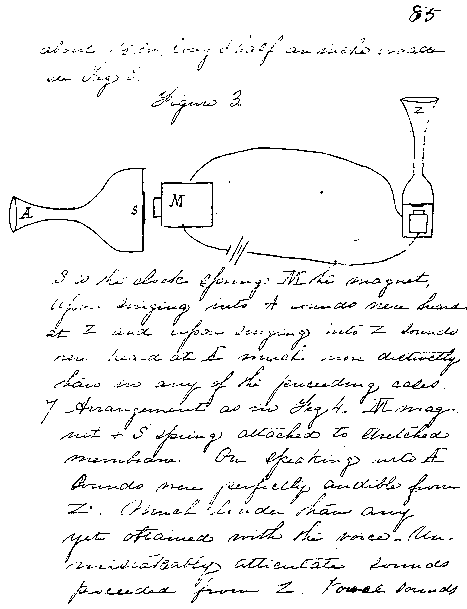 85
about in. long & half an inch wide
in Fig 3.
Figure 3
A S M Z
S is the clock spring. M the magnet,
Upon singing into A sounds were heard
at Z and upon singing into Z sounds
were heard at A much more distinctly
than in any of the preceeding cases.
7 Arrangement as in Fig 4. M mag-
net + S spring attached to stretched
membrane. On speaking into A
sounds were perfectly audible from
Z. Much louder than any
yet obtained with the voice. Un-
mistakably articulate sounds
proceeded from Z. Vowel sounds